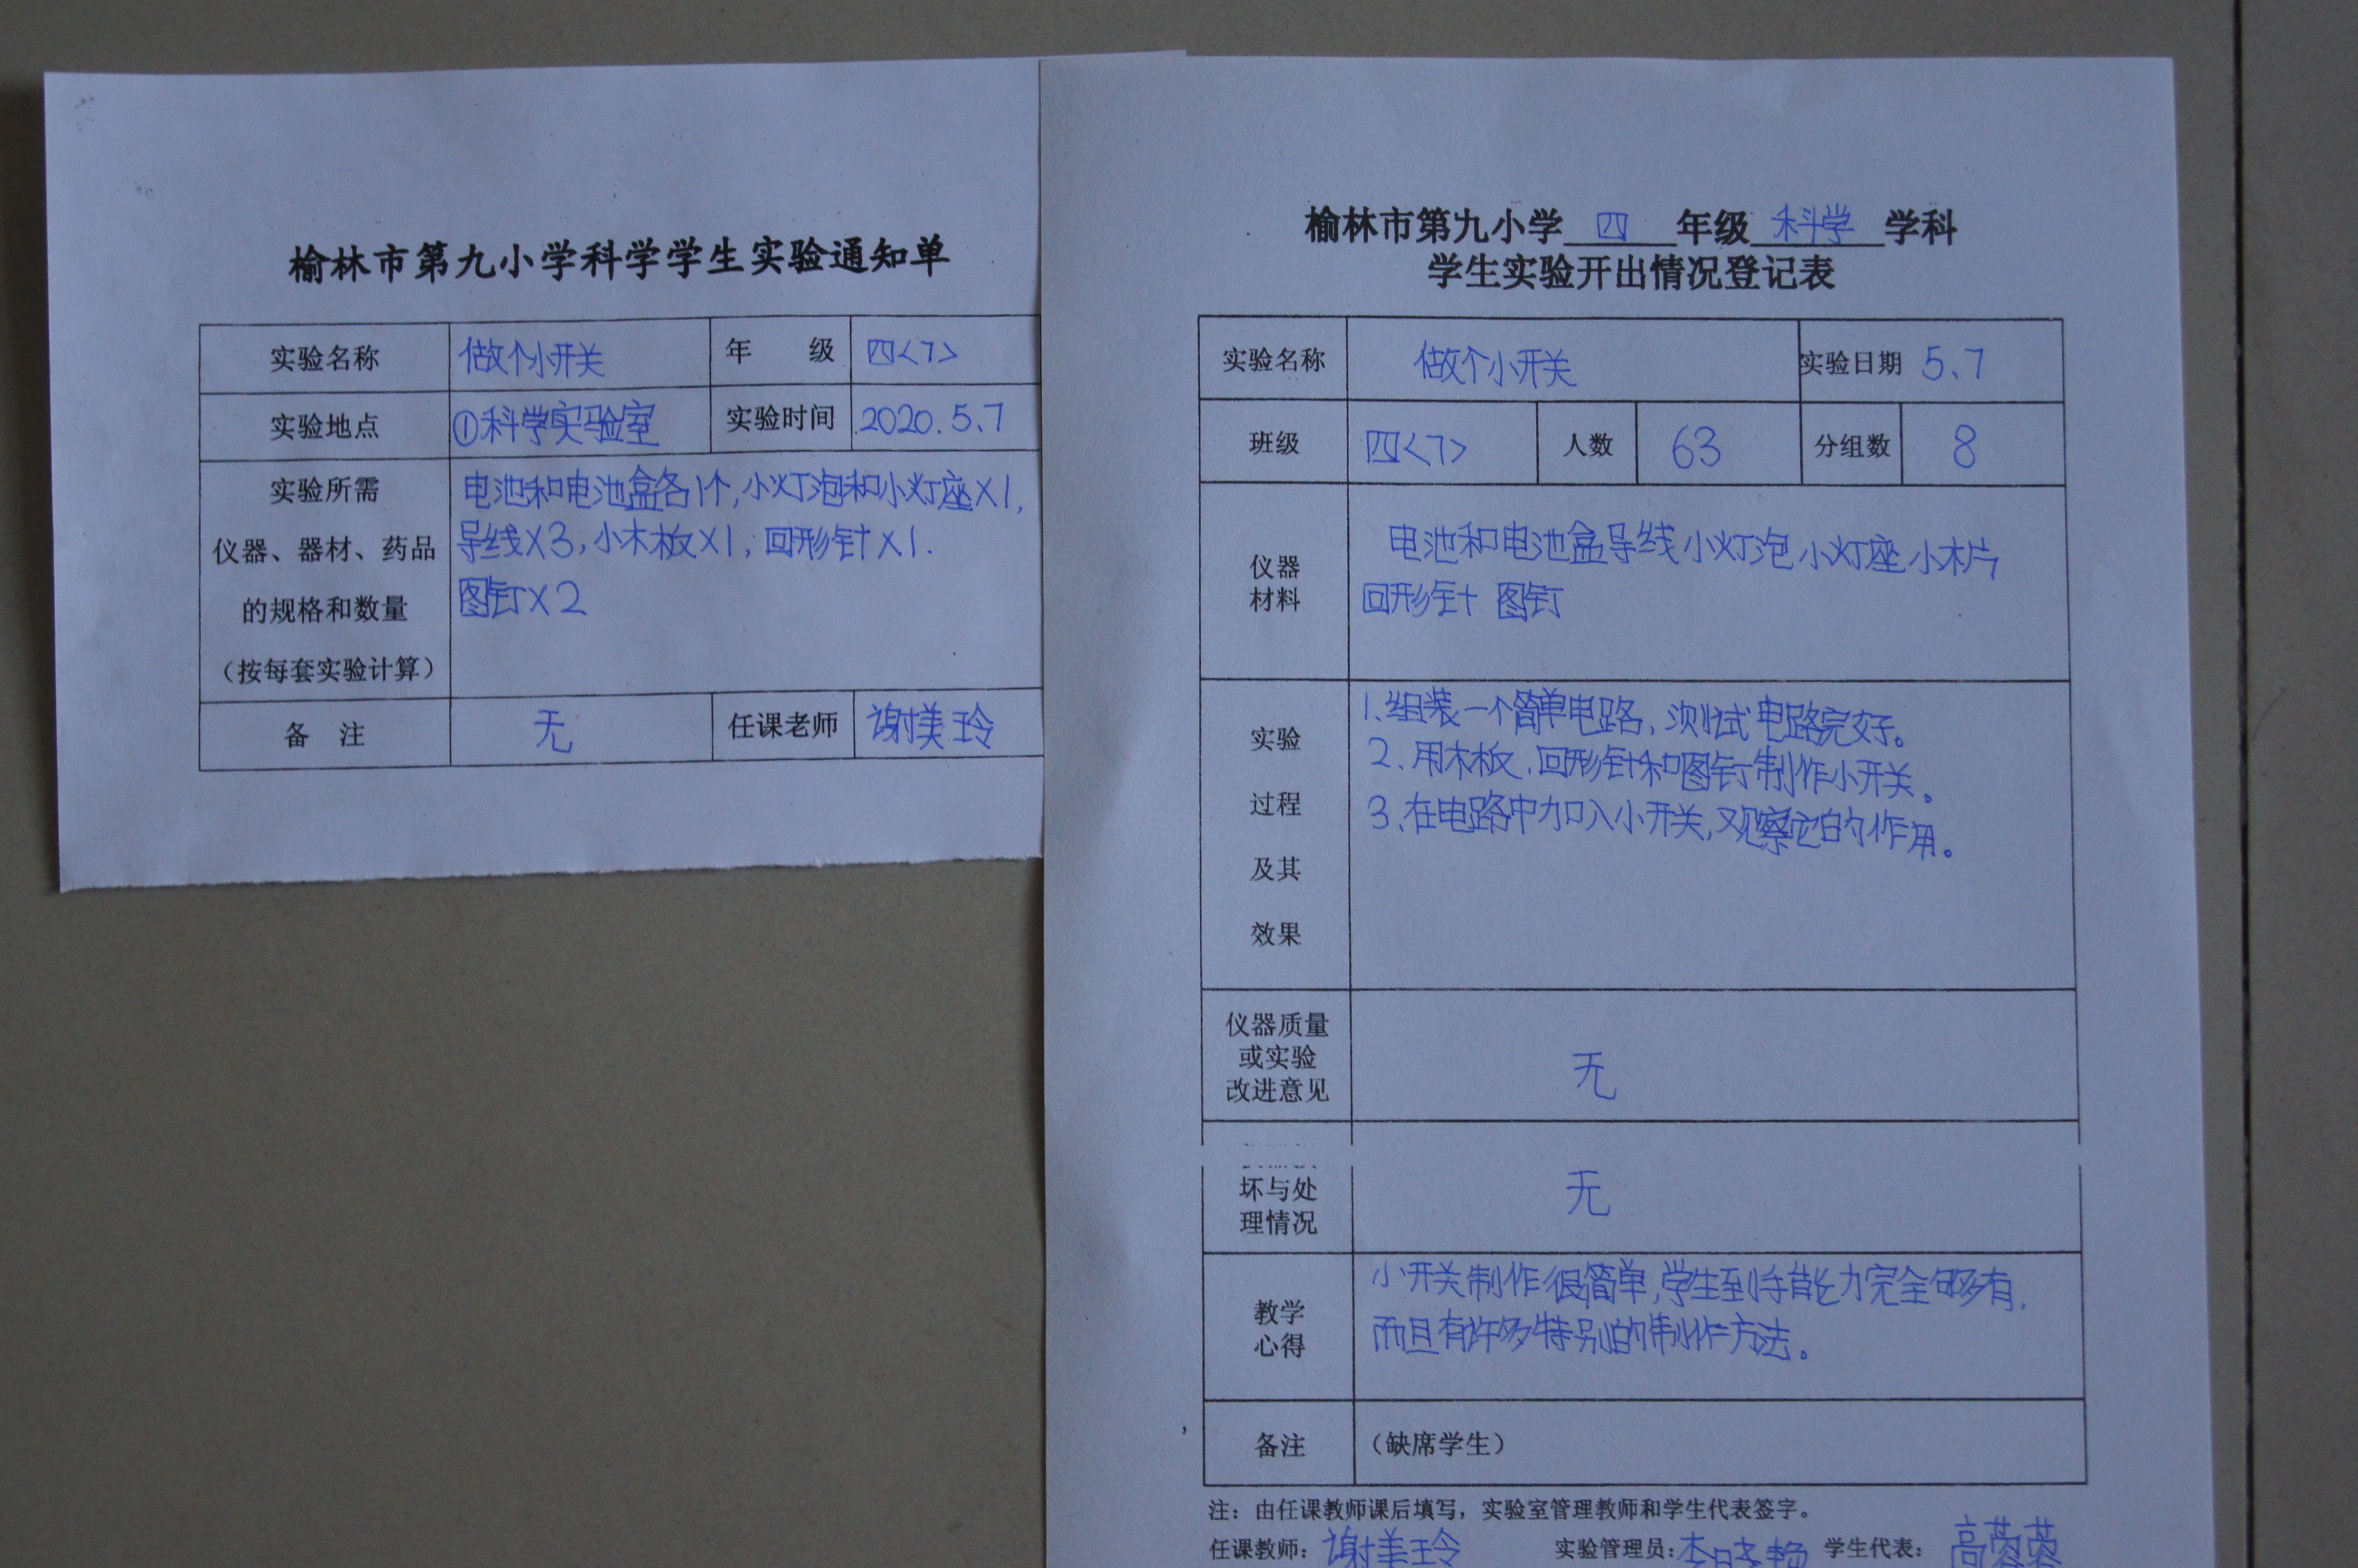 榆林市第九小学科学学生实验通知单
实验名称 做个小开关 年 级 四<7>
实验地点 ①科学实验室 实验时间 2020.5.7
实验所需
仪器、器材、药品
的规格和数量
(按每套实验计算)
电池和电池盒各1个,小灯泡和小灯座X1,
导线X3,小木板X1,回形针X1.
图钉X2
备 注 无 任课老师 谢美玲
榆林市第九小学 四 年级 科学 学科
学生实验开出情况登记表
实验名称 做个小开关 实验日期 5、7
班级 四<7> 人数 63 分组数 8
仪器
材料
电池和电池盒导线小灯泡小灯座小木片
回形针 图钉
实验
过程
及其
效果
1、组装一个简单电路,测试电路完好。
2、用木板、回形针和图钉制作小开关。
3、在电路中加入小开关,观察它的作用。
仪器质量
或实验
改进意见
无
坏与处
理情况
无
教学
心得
小开关制作很简单,学生手能力完全够有,
而且有许多特别的制作方法。
备注 (缺席学生)
注:由任课教师课后填写,实验室管理教师和学生代表签字。
任课教师: 谢美玲 实验管理员: 李晓艳 学生代表: 高蓉蓉